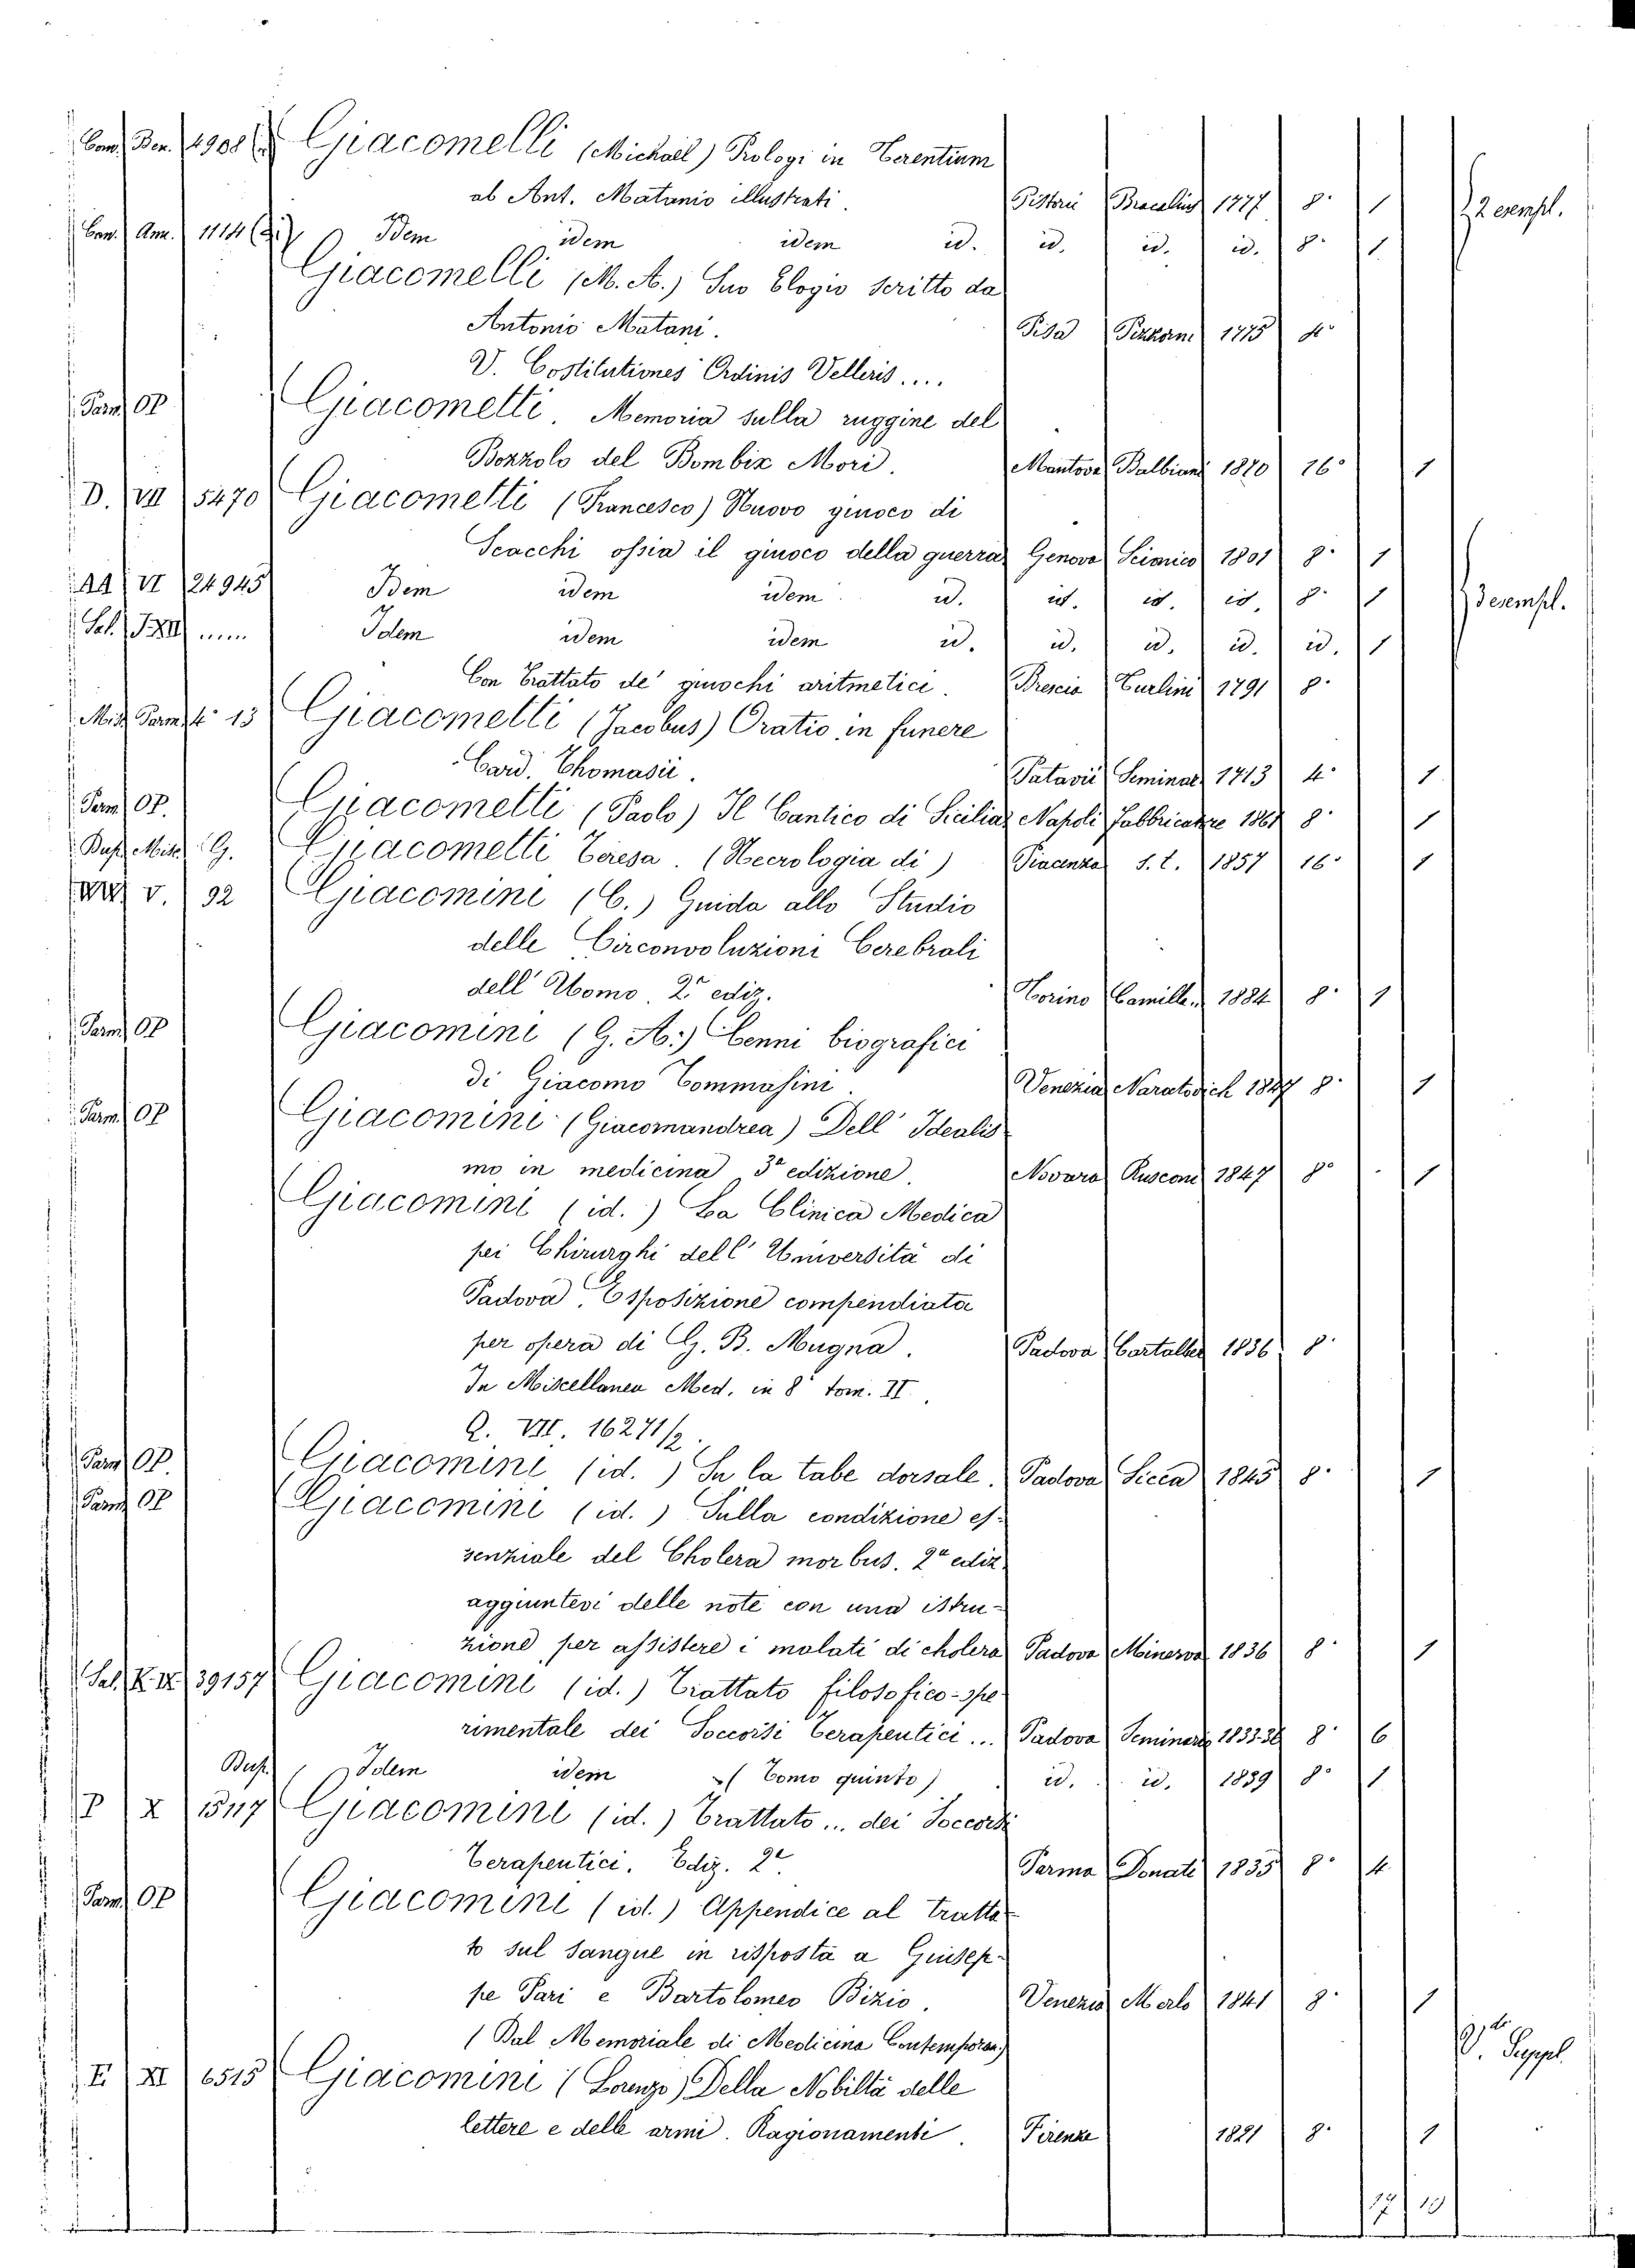 Com. Ben. 4908 Giacomelli (Michael) Prologi in Terentium
ab Ant. Matanio illustrati. Pistorii Bracalius 1777 8° 1 2 esempl.
Com. Ann. 1114 Idem idem idem id. id. id. id. 8° 1
Giacomelli (M. A.) Suo Elogio scritto da
Antonio Matani. Pisa Pizzorni 1775 4°
V. Costitutiones Ordinis Velleris....
Parm. OP Giacometti. Memoria sulla ruggine del
Bozzolo del Bombix Mori. Mantova Balbiani 1870 16° 1
D. VII 5470 Giacometti (Francesco) Nuovo giuoco di
Scacchi ossia il giuoco della guerra Genova Scionico 1801 8° 1
AA VI 24945 Idem idem idem id. id. id. id. 8° 1 3 esempl.
Sal. I.XII ..... Idem idem idem id. id. id. id. id. 1
Con Trattato de' giuochi aritmetici. Brescia Turlini 1791 8°
Misc. Parm. 4° 13 Giacometti (Jacobus) Oratio in funere
Card. Thomasii. Patavii Seminar. 1713 4° 1
Parm. OP. Giacometti (Paolo) Il Cantico di Sicilia Napoli Fabbricatore 1861 8° 1
Bus. Misc. G. Giacometti Teresa. (Necrologia di) Piacenza s. t. 1857 16° 1
V. 92 Giacomini (C.) Guida allo Studio
delle Circonvoluzioni Cerebrali
dell' Uomo. 2ª ediz. Torino Camilla 1884 8° 1
Parm. OP Giacomini (G. A.) Cenni biografici
di Giacomo Tommasini. Venezia Naratovich 1847 8° 1
Parm. OP Giacomini (Giacomandrea) Dell' Idealis-
mo in medicina 3ª edizione. Novara Rusconi 1847 8° 1
Giacomini (id.) La Clinica Medica
pei Chirurghi dell' Università di
Padova. Esposizione compendiata
per opera di G. B. Mugna. Padova Cartallier 1836 8°
In Miscellanea Med. in 8° tom. II.
Q. VII. 16271/2.
Parm. OP. Giacomini (id.) Su la tabe dorsale. Padova Sicca 1845 8° 1
Parm. OP Giacomini (id.) Sulla condizione es-
senziale del Cholera morbus. 2ª ediz.
aggiuntevi delle note con una istru-
zione per assistere i malati di cholera Padova Minerva 1836 8° 1
Sal. K. IX 39157 Giacomini (id.) Trattato filosofico-spe-
rimentale dei Soccorsi Terapentici... Padova Seminario 1833-36 8° 6
Bus. Idem idem (Tomo quinto) id. id. 1839 8° 1
P X 1517 Giacomini (id.) Trattato... dei Soccorsi
Terapentici. Ediz. 2ª Parma Donati 1835 8° 4
Parm. OP Giacomini (id.) Appendice al tratta-
to sul sangue in risposta a Giusep-
pe Pari e Bartolomeo Bizio. Venezia Merlo 1841 8° 1
(Dal Memoriale di Medicina Contemporan.) V. Suppl.
E XI 6515 Giacomini (Lorenzo) Della Nobiltà delle
lettere e delle armi. Ragionamenti. Firenze 1821 8° 1
17 19